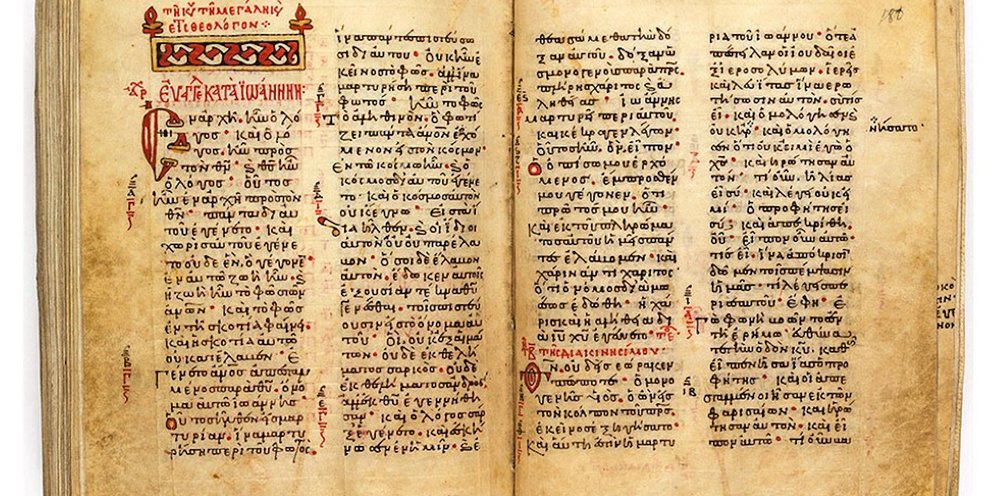 ΕΥΑΓΓΕ ΚΑΤΑ ΪΩΑΝΝΗΝ:
Ἐν ἀρχῆ ἦν ὁ λό
γος · καὶ ὁ λό
γος ἦν πρὸς
τὸν θν · κ θς ἦν
ὁ λόγος · οὗτος
ἦν ἐν ἀρχῆ πρὸς τὸν
θν · πάντα δι αὐ
τοῦ ἐγένετο · καὶ
χωρὶς αὐτοῦ ἐγένε
το οὐδὲ ἕν, ὃ γέγονεν ·
ἐν αὐτῶ ζωὴ ἦν · κ
ἡ ζωὴ ἦν τὸ φῶς τῶν
ἀνων · καὶ τὸ φῶς
ἐν τῆ σκοτία φαίνει ·
καὶ ἡ σκοτία αὐτὸ
οὐ κατέλαβεν · Ἐ
γένετο ἄνος ἀπεσταλ
μένος παρὰ θυ · ὄνο
μα αὐτῶ ἰωάννης ·
οὗτος ἦλθεν εἰς μαρ
τυρίαν · ἵνα μαρτυ
ρήση περὶ τοῦ φωτός ·
ἵνα πάντες πιστεύσω
σιν δι αὐτοῦ · οὐκ ἦν ἐ
κεῖνος τὸ φῶς · ἀλλ ἵνα
μαρτυρήση περὶ τοῦ
φωτός · ἦν τὸ φῶς
τὸ ἀληθινόν · ὃ φωτί
ζει πάντα ἄνον ἐρχό
μενον εἰς τὸν κόσμον ·
ἐν τῶ κόσμω ἦν · κ ὁ
κόσμος δι αὐτοῦ ἐγένε
το · καὶ ὁ κόσμος αὐτὸν
οὐκ ἔγνω · εἰς τὰ ἴ
δια ἦλθεν · κ οἱ ἴδιοι
αὐτὸν οὐ παρέλα
βον · ὅσοι δὲ ἔλαβον
αὐτόν · ἔδωκεν αὐτοῖς
ἐξουσίαν τέκνα θυ
γενέσθαι · τοῖς πιστεύ
ουσιν εἰς τὸ ὄνομα αὐ
τοῦ · οἳ, οὐκ ἐξ αἱμά
των · οὐδὲ ἐκ θελή
ματος σαρκὸς · οὐδὲ
ἐκ θελήματος ἀνδρός ·
ἀλλ ἐκ θυ ἐγεννήθη
σαν · καὶ ὁ λόγος σὰρ
ξ ἐγένετο · καὶ ἐσκή
νωσεν ἐν ἡμῖν · κ ἐ
θεασάμεθα τὴν δό
ξαν αὐτοῦ · δόξαν
ὡς μονογενοῦς παρὰ πρς ·
πλήρης χάριτος καὶ
ἀληθείας · ἰωάννης
μαρτυρεῖ περὶ αὐτοῦ ·
καὶ κέκραγεν λέγων ·
οὗτος ἦν, ὃν εἶπον ·
ὁ ὀπίσω μου ἐρχό
μενος, ἔμπροσθέν
μου γέγονεν, ὅτι
πρῶτός μου ἦν ·
καὶ ἐκ τοῦ πληρώμα
τος αὐτοῦ ἡμεῖς πάν
τες ἐλάβομεν · καὶ
χάριν ἀντὶ χάριτος ·
ὅτι ὁ νόμος διὰ μωυ
σέως ἐδόθη · ἡ χά
ρις καὶ ἡ ἀλήθεια διὰ
ιυ χυ ἐγένετο ·
τῆς διακινησίμου ·
Θν οὐδεὶς ἑώρακεν
πώποτε · ὁ μονο
γενὴς υς · ὁ ὢν εἰς
τὸν κόλπον τοῦ πρς ·
ἐκεῖνος ἐξηγήσατο ·
καὶ αὕτη ἐστὶν ἡ μαρτυ
ρία τοῦ ἰωάννου · ὅτε ἀ
πέστειλαν οἱ ἰουδαῖοι ἐ
ξ ἱεροσολύμων · ἱερεῖς
καὶ λευίτας ἵνα ἐρω
τήσωσιν αὐτόν · σὺ τίς
εἶ · καὶ ὡμολόγησεν
κ οὐκ ἠρ · καὶ ὡμολόγη
σεν ὅτι οὐκ εἰμὶ ἐγὼ ὁ
χς · καὶ ἠρώτησαν αὐ
τόν · τί οὖν. ἡλίας
εἶ σύ · καὶ λέγει οὐκ εἰ
μί · ὁ προφήτης εἶ
σύ · καὶ ἀπεκρίθη.
οὔ · εἶπον οὖν αὐτῶ
τίς εἶ · ἵνα ἀπόκρισιν
δῶμεν τοῖς πέμψασιν
ἡμᾶς · τί λέγεις πε
ρὶ σεαυτοῦ · ἔφη · ἐ
γὼ φωνὴ βοῶντος ἐν
τῆ ἐρήμω · εὐθύνα
τε τὴν ὁδὸν κυ. καθὼς
εἶπεν ἠσαΐας ὁ προ
φήτης · καὶ οἱ ἀπε
σταλμένοι ἦσαν ἐκ τῶν
φαρισαίων · καὶ ἠρώ
τησαν αὐτόν · καὶ εἶ
πον αὐτῶ · τί οὖν βα